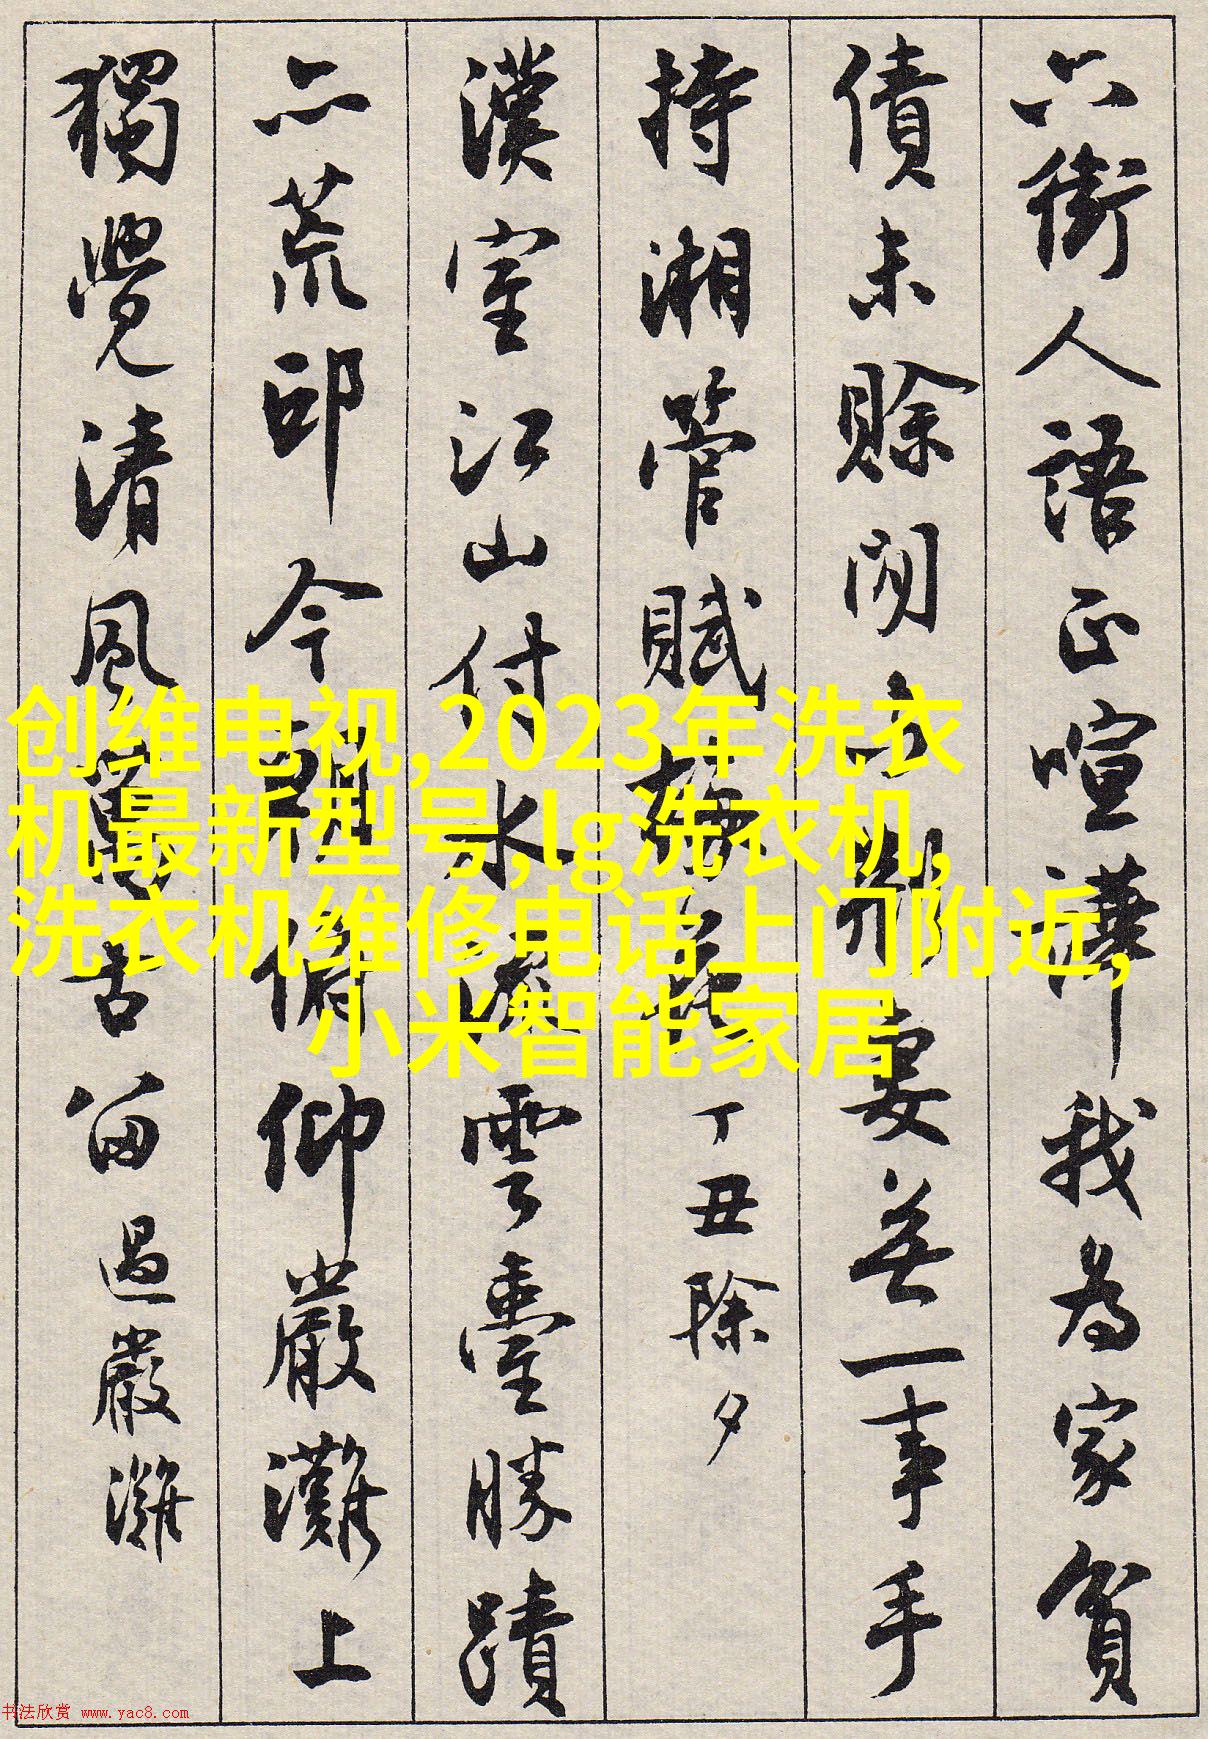 六街人語正喧譁我為家貧
債未賒閒妻無一事手
持湘管賦梅花 丁丑除夕
漢室江山付水流雲臺勝蹟
亦荒邱今朝俯仰嚴灘上
獨覺清風萬古留 過嚴灘
创维电视,2023年洗衣
机最新型号,lg洗衣机,
洗衣机维修电话上门附近,
小米智能家居
书法欣赏 www.yac8.com